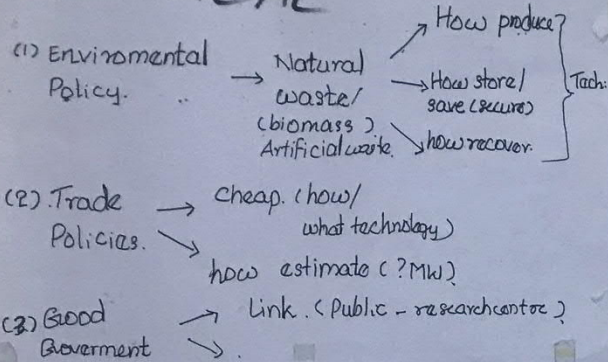 (1) Enviromental
Policy.
Natural
waste/
(biomass)
Artificial waste.
How produce?
How store/
save (secure)
how recover.
Tach:
(2). Trade
Policias.
cheap. (how/
what technology)
how estimate (?MW)
(3) Good
Goverment
Link. (Public - rasearchcentre)